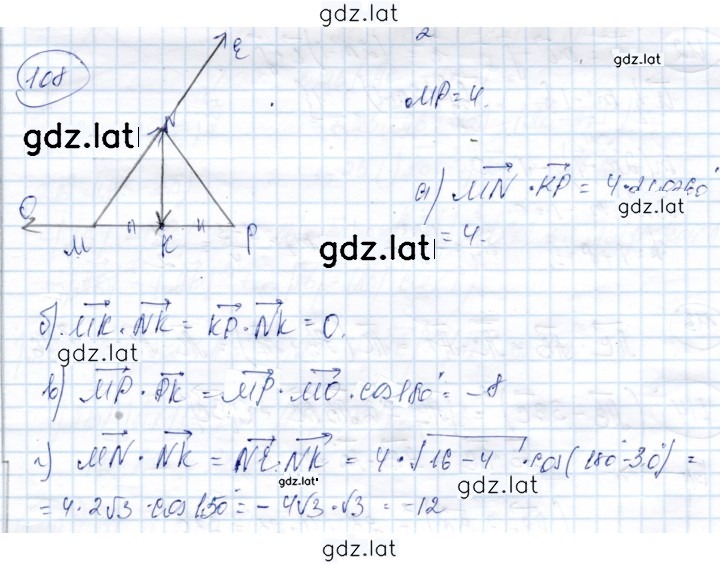 gdz.lat
2
108
E
gdz.lat
MP = 4.
gdz.lat
N
а) MN · KP = 4·2·cos60°
gdz.lat
= 4.
O
M
K
P
gdz.lat
б) MK · NK = KP · NK = 0.
gdz.lat
в) MP · PK = MP · MO · cos180° = -8
г) MN · NK = NE · NK = 4·√16-4 · cos(180°-30°) =
gdz.lat
gdz.lat
= 4·2√3 · cos150° = -4√3·√3 = -12
gdz.lat